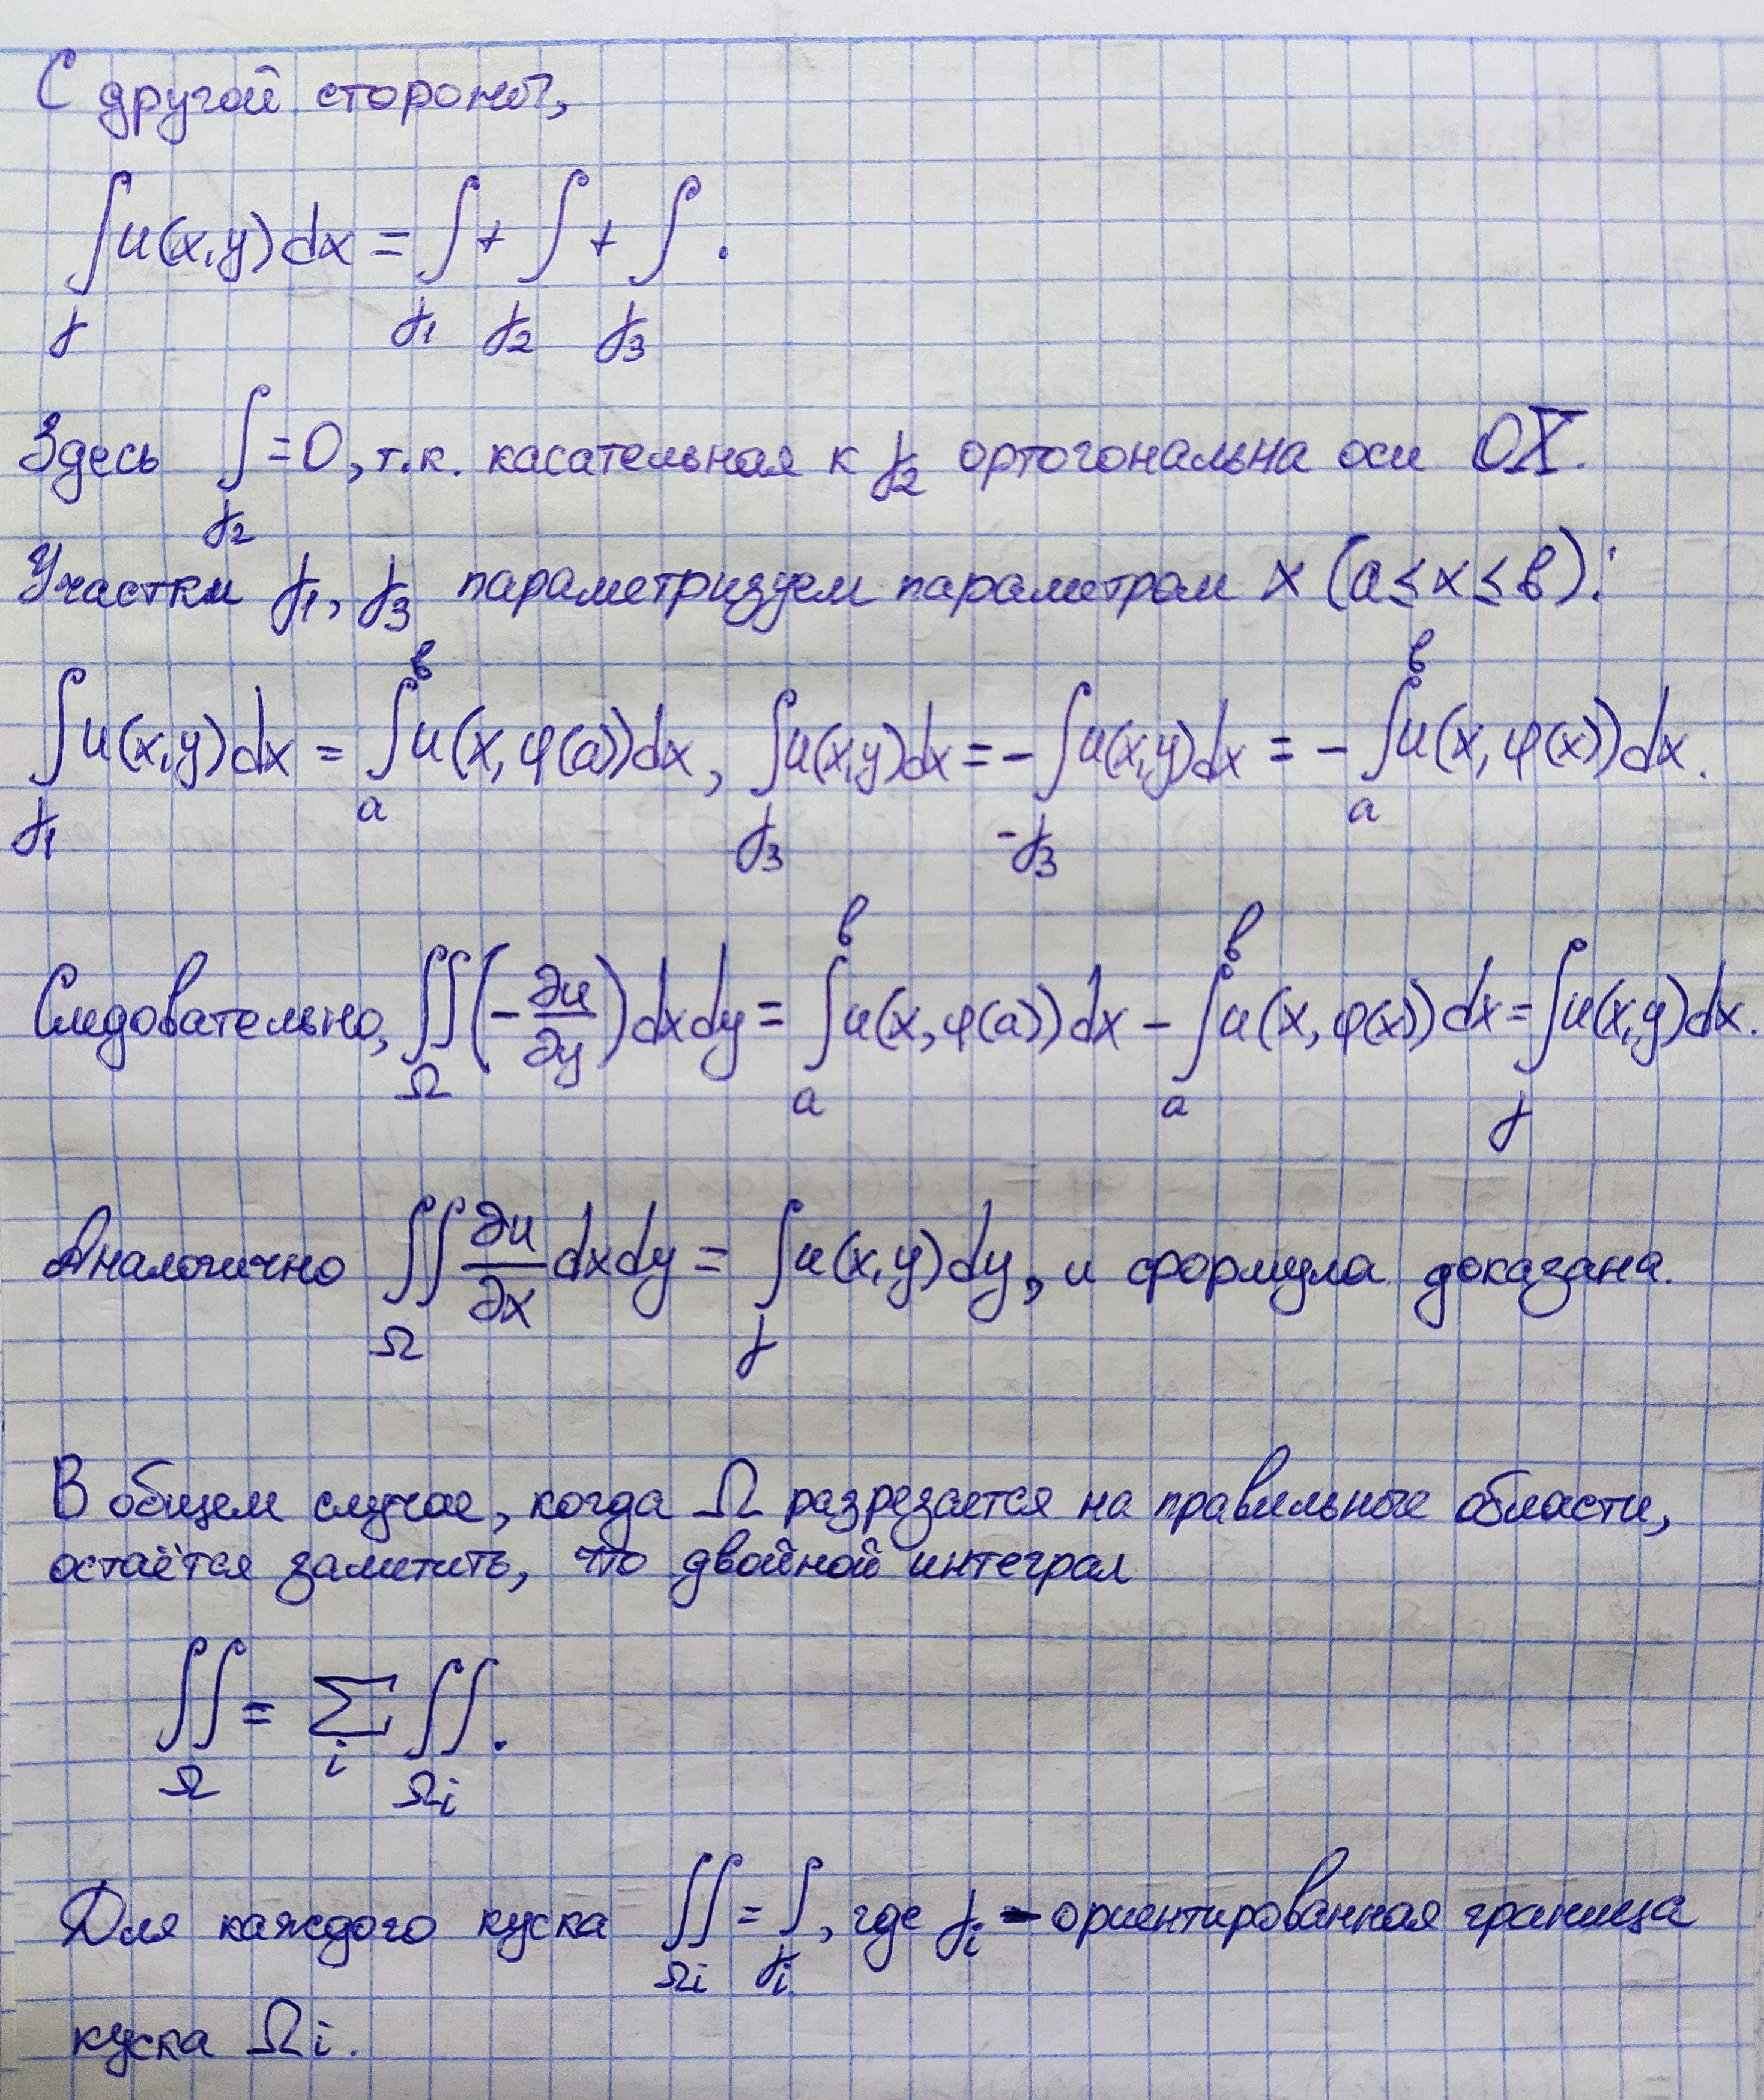 С другой стороны,
∫_γ u(x,y)dx = ∫_γ₁ + ∫_γ₂ + ∫_γ₃ .
Здесь ∫_γ₂ = 0, т.к. касательная к γ₂ ортогональна оси OX.
Участки γ₁, γ₃ параметризуем параметром x (a ≤ x ≤ b):
∫_γ₁ u(x,y)dx = ∫_a^b u(x, φ(a))dx, ∫_γ₃ u(x,y)dx = - ∫_-γ₃ u(x,y)dx = - ∫_a^b u(x, φ(x))dx.
Следовательно, ∬_Ω (-∂u/∂y) dxdy = ∫_a^b u(x, φ(a))dx - ∫_a^b u(x, φ(x))dx = ∫_γ u(x,y)dx.
Аналогично ∬_Ω ∂u/∂x dxdy = ∫_γ u(x,y)dy, и формула доказана.
В общем случае, когда Ω разрезается на правильные области,
остаётся заметить, что двойной интеграл
∬_Ω = ∑_i ∬_Ωi .
Для каждого куска ∬_Ωi = ∫_γi , где γi - ориентированная граница
куска Ωi.